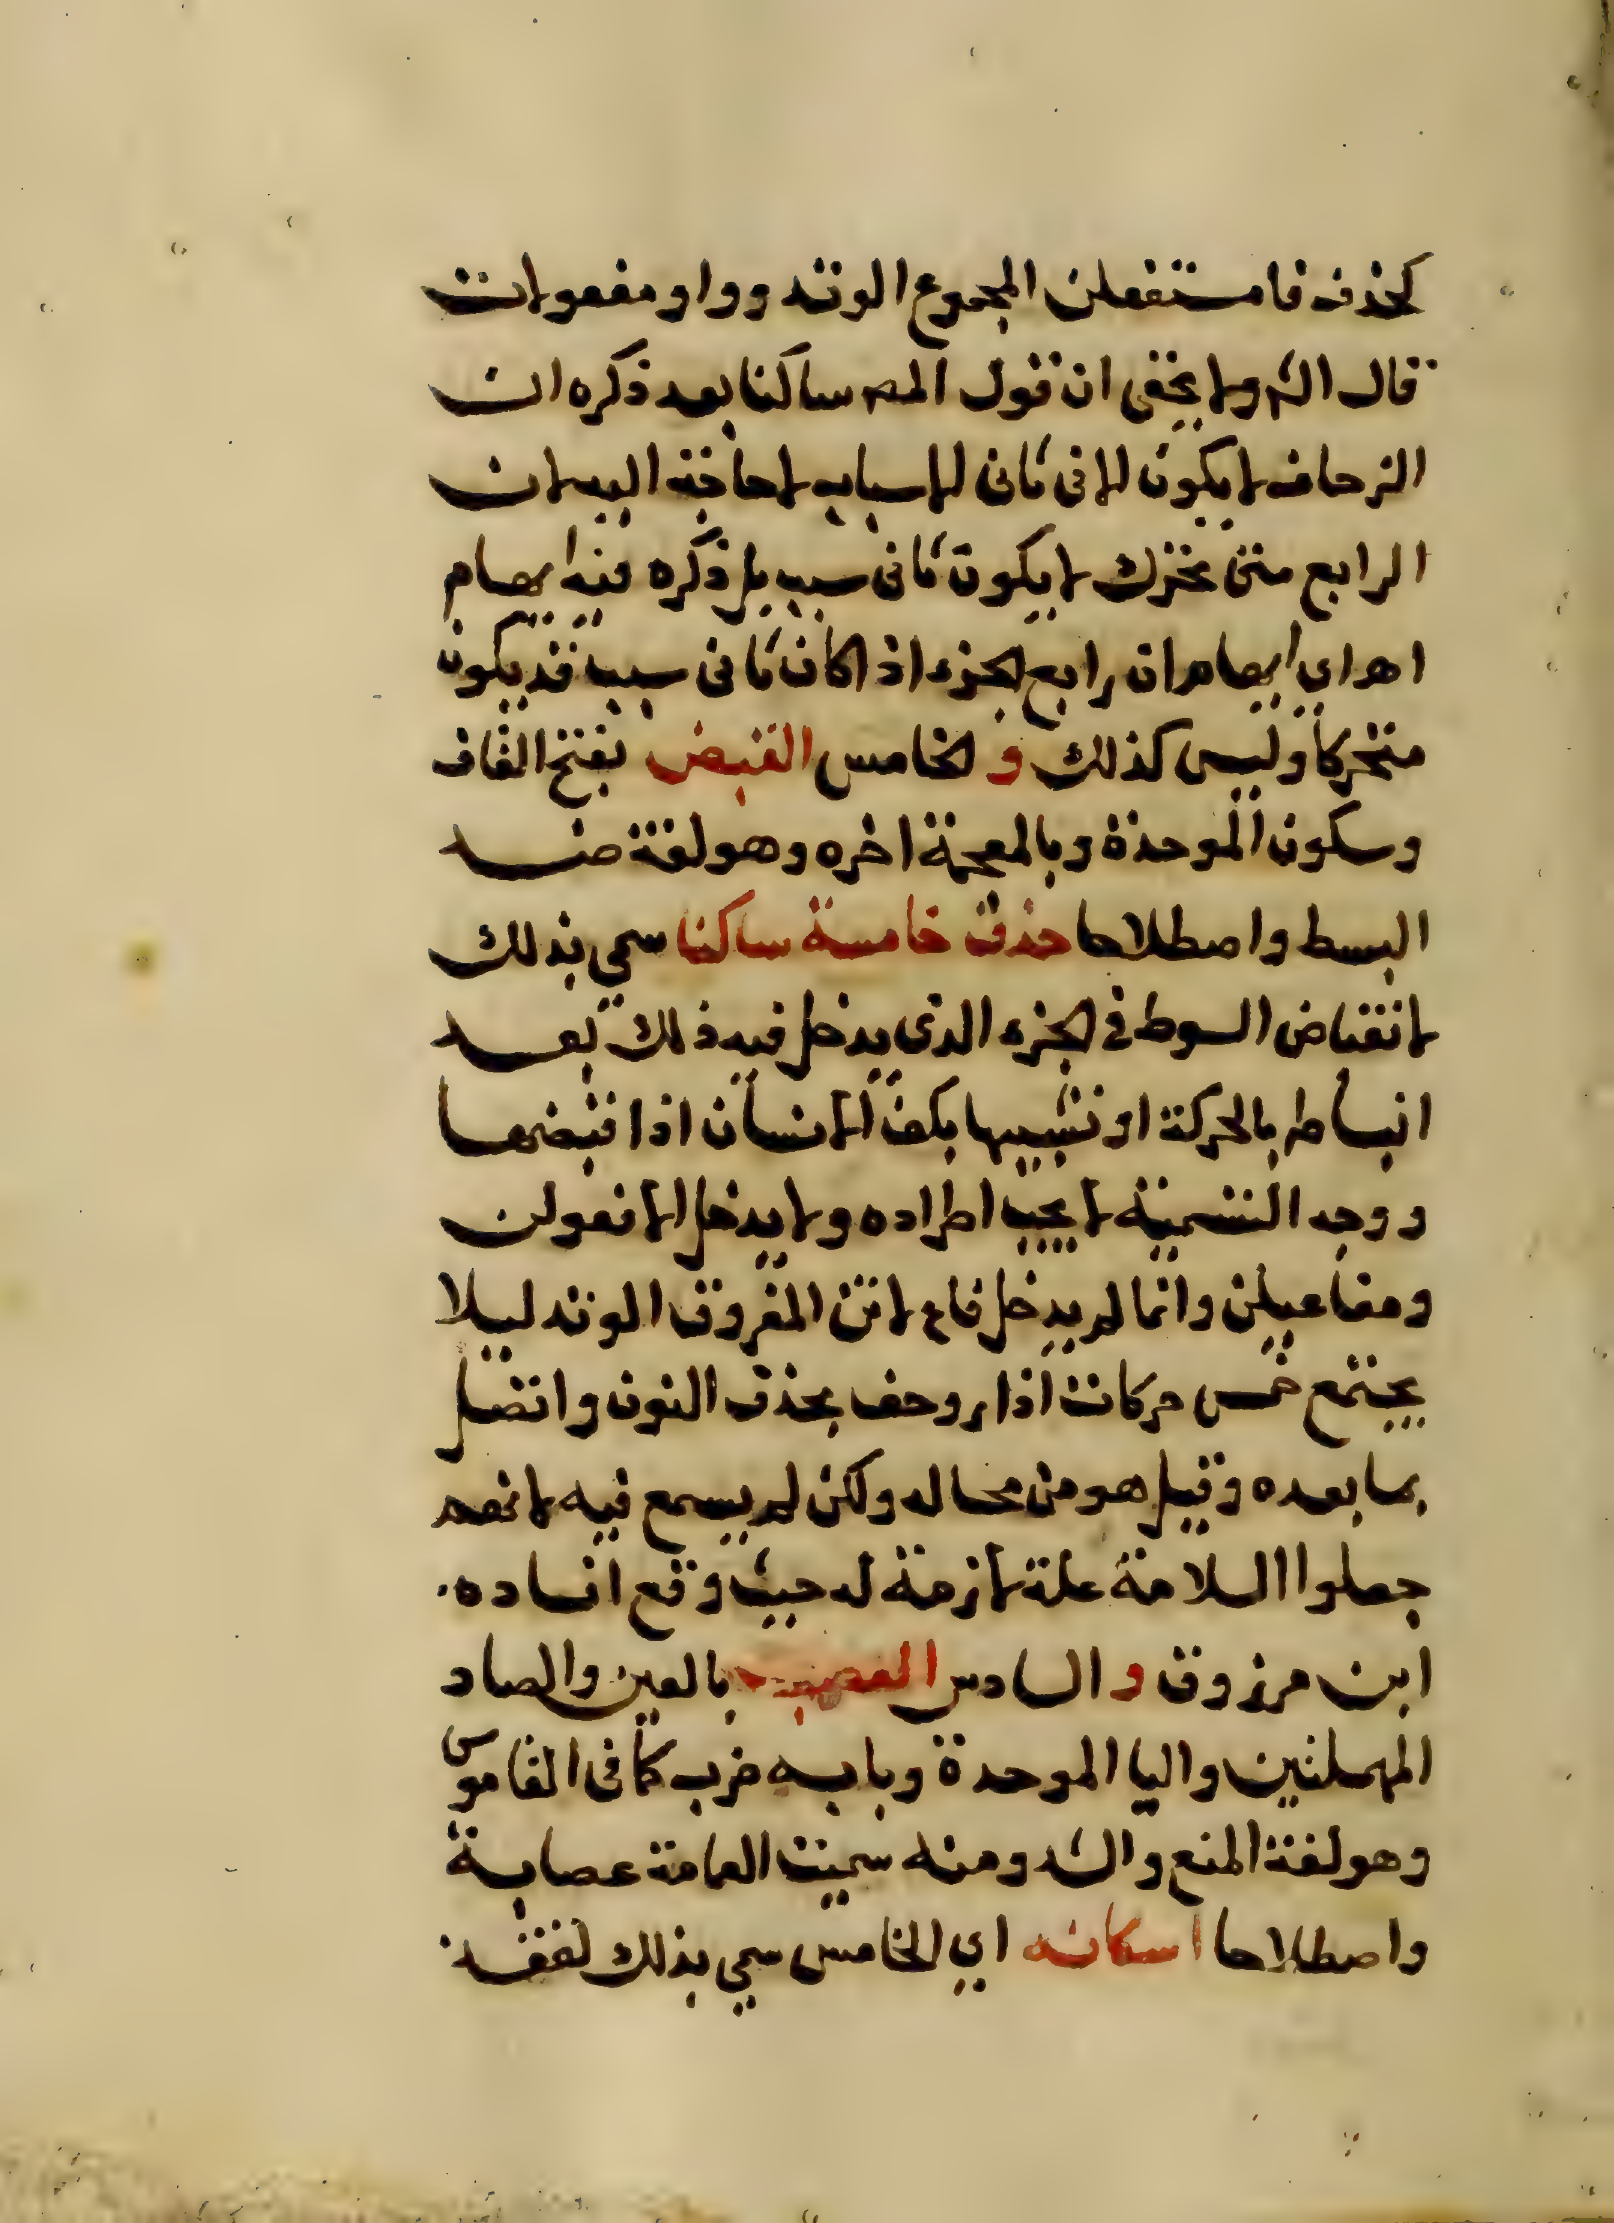 كحذف فا مستفعلن المجموع الوتد وواو مفعولات
قال الش ولا يخفى ان قول المص ساكنا بعد ذكره ان
الزحاف لا يكون الا فى ثانى الاسباب لا حاجة اليه لان
الرابع متى تحرك لا يكون ثانى سبب بل ذكره فيه ايهام
اهـ اي ايهام ان رابع الجزء اذا كان ثانى سبب قد يكون
متحركا وليس كذلك و الخامس القبض بفتح القاف
وسكون الموحدة وبالمعجمة اخره وهو لغة ضد
البسط واصطلاحا حذف خامسة ساكنا سمي بذلك
لانقباض السوط في الجزء الذى يدخل فيه ذلك بعد
انبساطه بالحركة او تشبيها بكف الانسان اذا قبضها
ووجه التسمية لا يجب اطراده ولا يدخل الا فعولن
ومفاعيلن وانما لم يدخل فاع لاتن المفروق الوتد ليلا
يجتمع خمس حركات اذا زوحف بحذف النون واتصل
بما بعده وقيل هو من محاله ولكن لم يسمع فيه لانهم
جعلوا السلامة علة لازمة له حيث وقع افاده
ابن مرزوق و السادس العصب بالعين والصاد
المهملتين والبا الموحدة وبابه ضرب كما فى القاموس
وهو لغة المنع والشد ومنه سميت العمامة عصابة
واصطلاحا اسكانه اي الخامس سمي بذلك لفقد